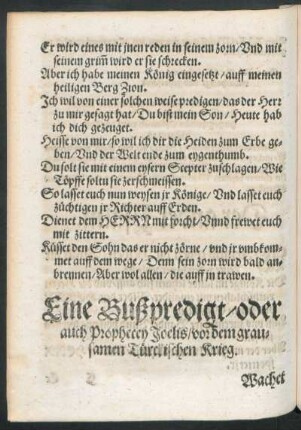 Er wird eines mit jnen reden in seinem zorn/ Vnd mit
seinem grim̃ wird er sie schrecken.
Aber ich habe meinen König eingesetzt/ auff meinen
heiligen Berg Zion.
Ich wil von einer solchen weise predigen/ das der Herr
zu mir gesagt hat/ Du bist mein Son/ Heute hab
ich dich gezeuget.
Heische von mir/ so wil ich dir die Heiden zum Erbe ge-
ben/ Vnd der Welt ende zum eygenthumb.
Du solt sie mit einem eysern Scepter zuschlagen/ Wie
Töpffe soltu sie zerschmeissen.
So lasset euch nun weysen jr Könige/ Vnd lasset euch
züchtigen jr Richter auff Erden.
Dienet dem HERRN mit forcht/ Vnnd frewet euch
mit zittern.
Küsset den Sohn das er nicht zörne/ vnd jr vmbkom-
met auff dem wege/ Denn sein zorn wird bald an-
brennen/ Aber wol allen/ die auff jn trawen.
Eine Bußpredigt/ oder
auch Prophecey Joelis/ vor dem grau-
samen Türckischen Krieg.
Wachet